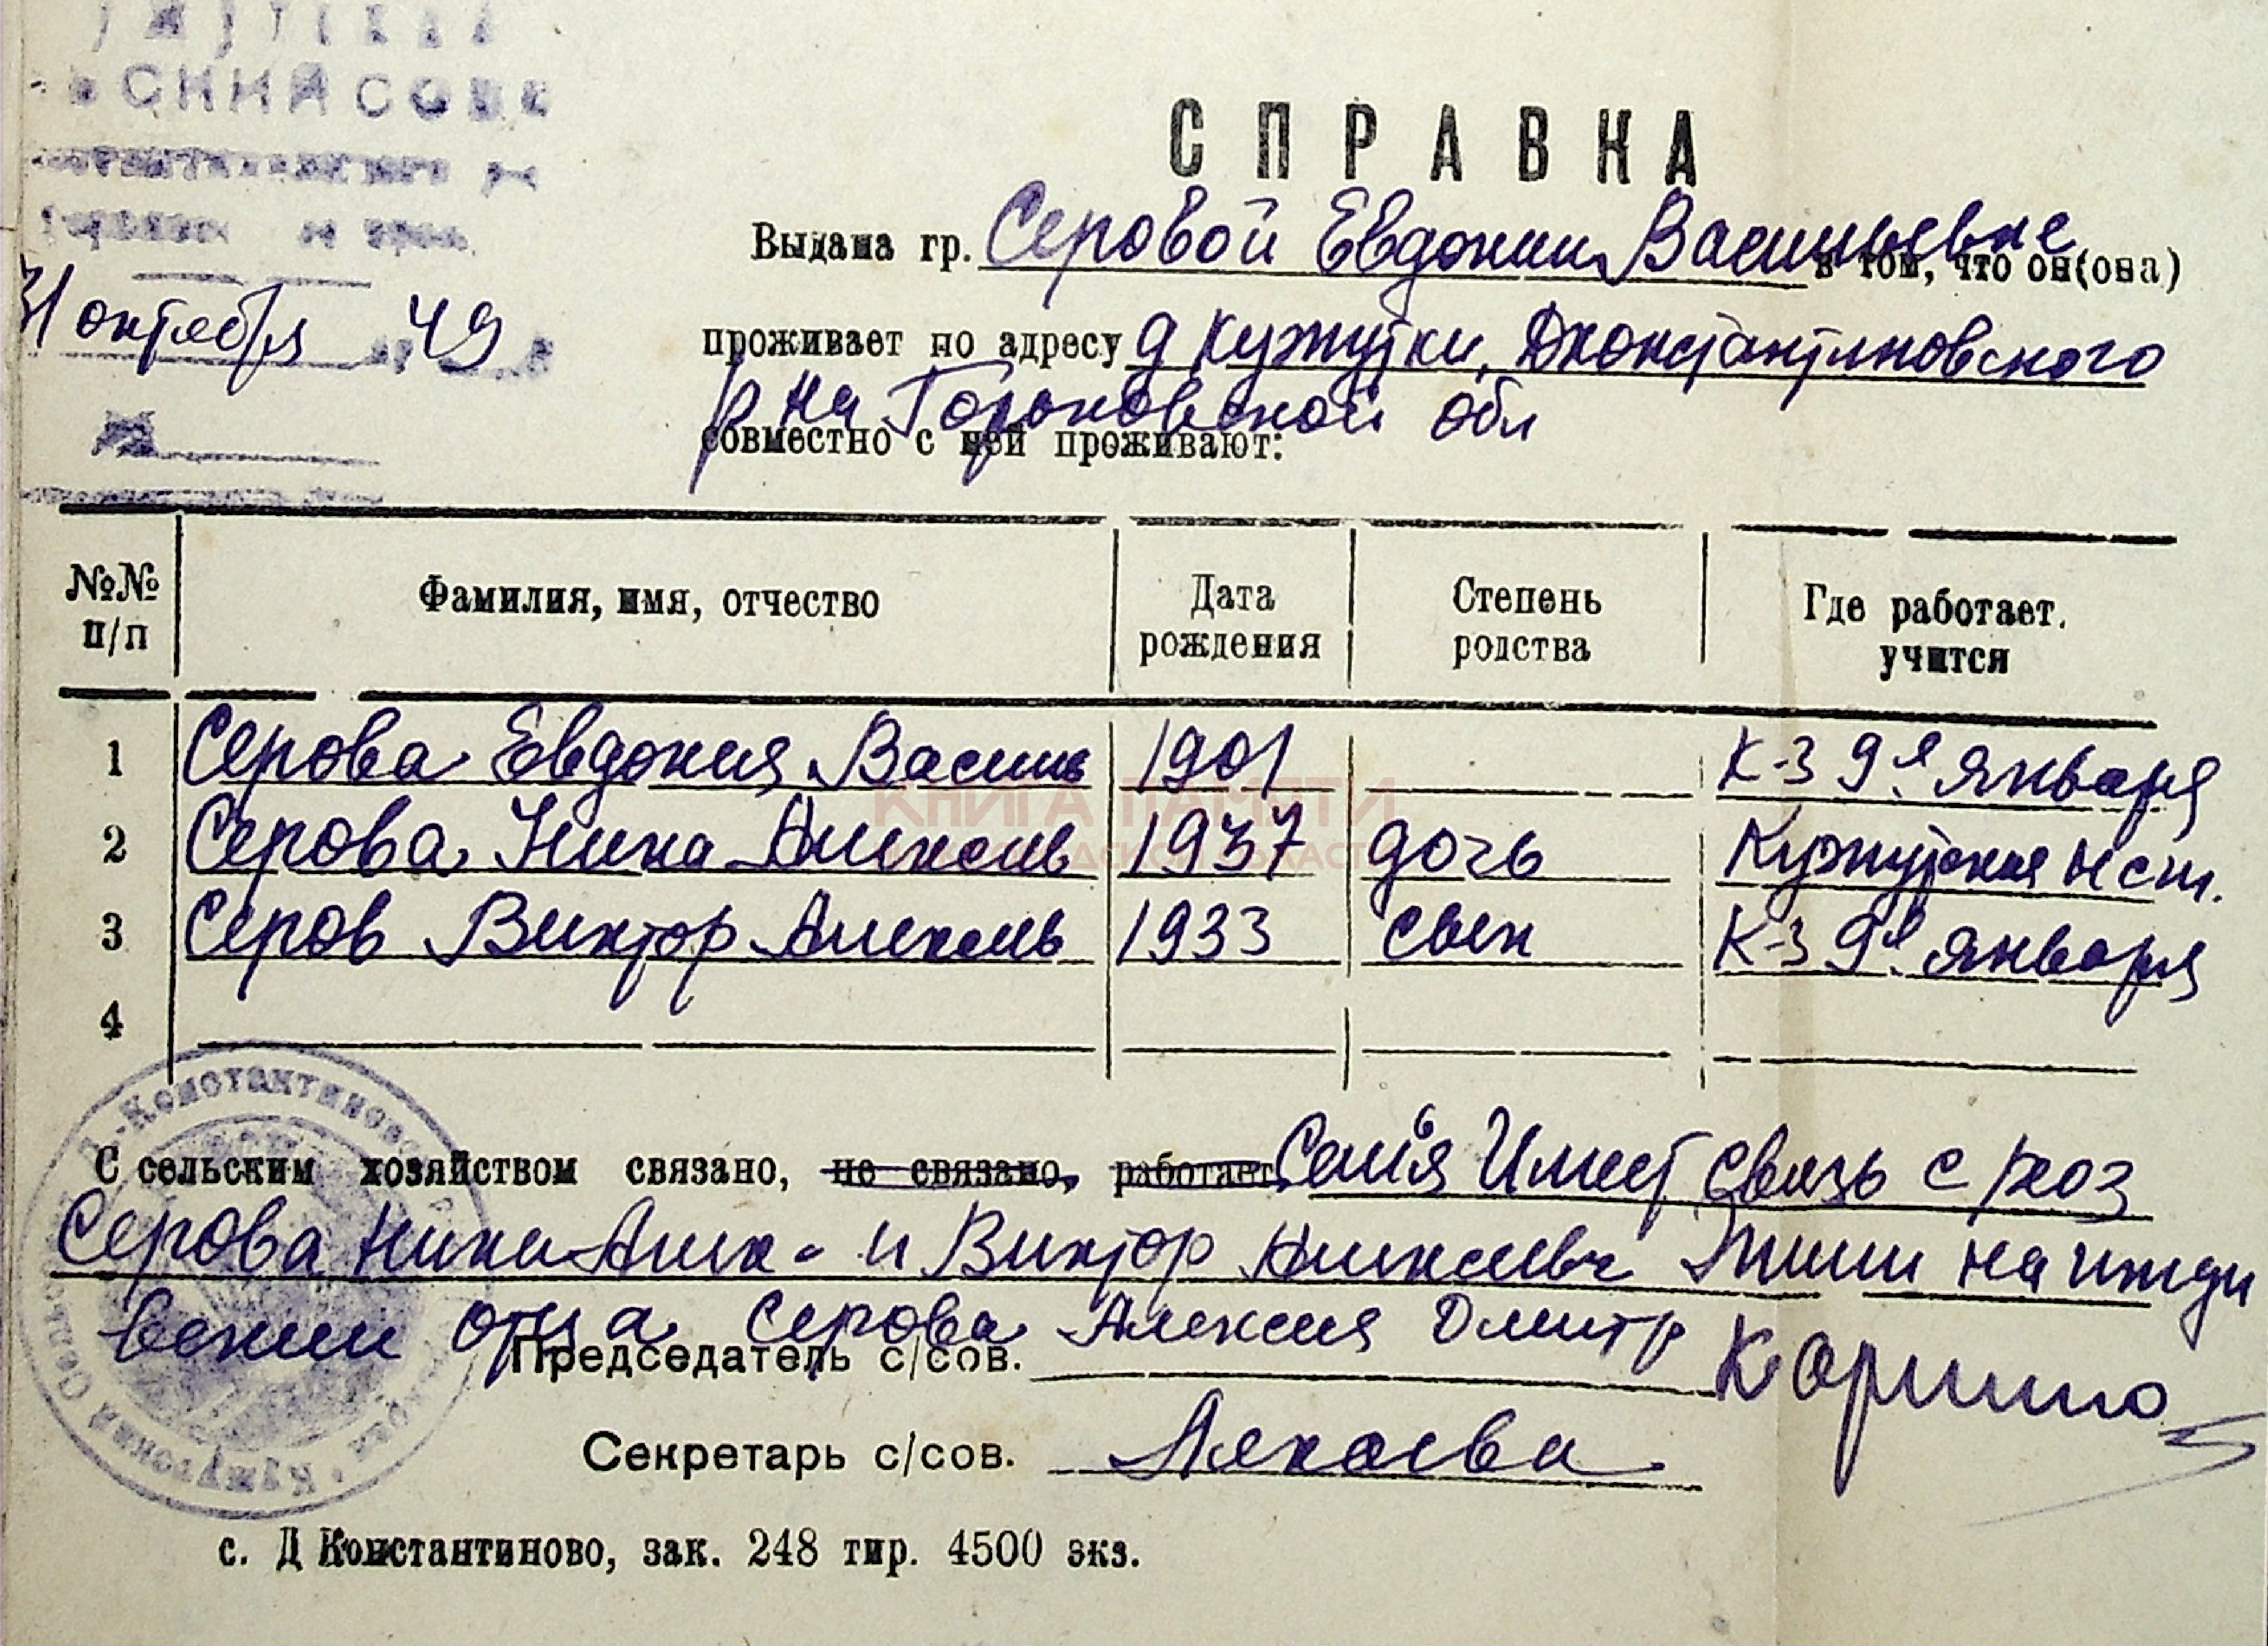 31 октября 49
СПРАВКА
Выдана гр. Серовой Евдокии Васильевне в том, что он(она)
проживает по адресу д Кужутки, Дконстантиновского
р на Горьковской обл
совместно с ней проживают:
№№ п/п Фамилия, имя, отчество Дата рождения Степень родства Где работает. учится
1 Серова Евдокия Василь 1901 К-з 9е января
2 Серова Нина Алексеь 1937 дочь Кужутская н сш.
3 Серов Виктор Алексеь 1933 свен К-з 9е января
4
С сельским хозяйством связано, не связано, работает Семья Имеет связь с
Серова Нина Алек- и Виктор Алексеевч Жили на ижди
вении отца Серова Алексея Дмитр
Председатель с/сов.
Секретарь с/сов.
с. Д Константиново, зак. 248 тир. 4500 экз.
КНИГА ПАМЯТИ